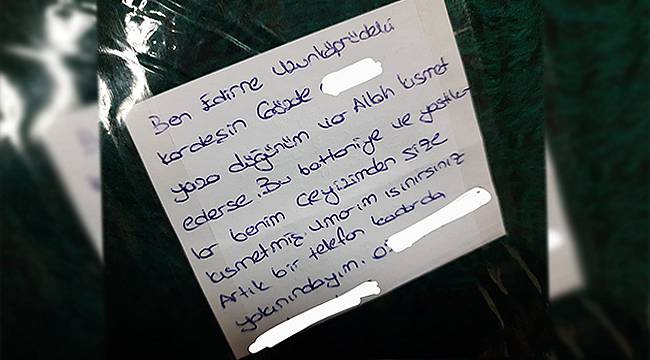 Ben Edirne Uzunköprüdeki
kardeşin Gözde
yaza düğünüm var Allah kısmet
ederse. Bu battaniye ve yastık-
lar benim çeyizimden size
kısmetmiş umarım ısınırsınız
Artık bir telefon kadarda
yakınındayım. 0